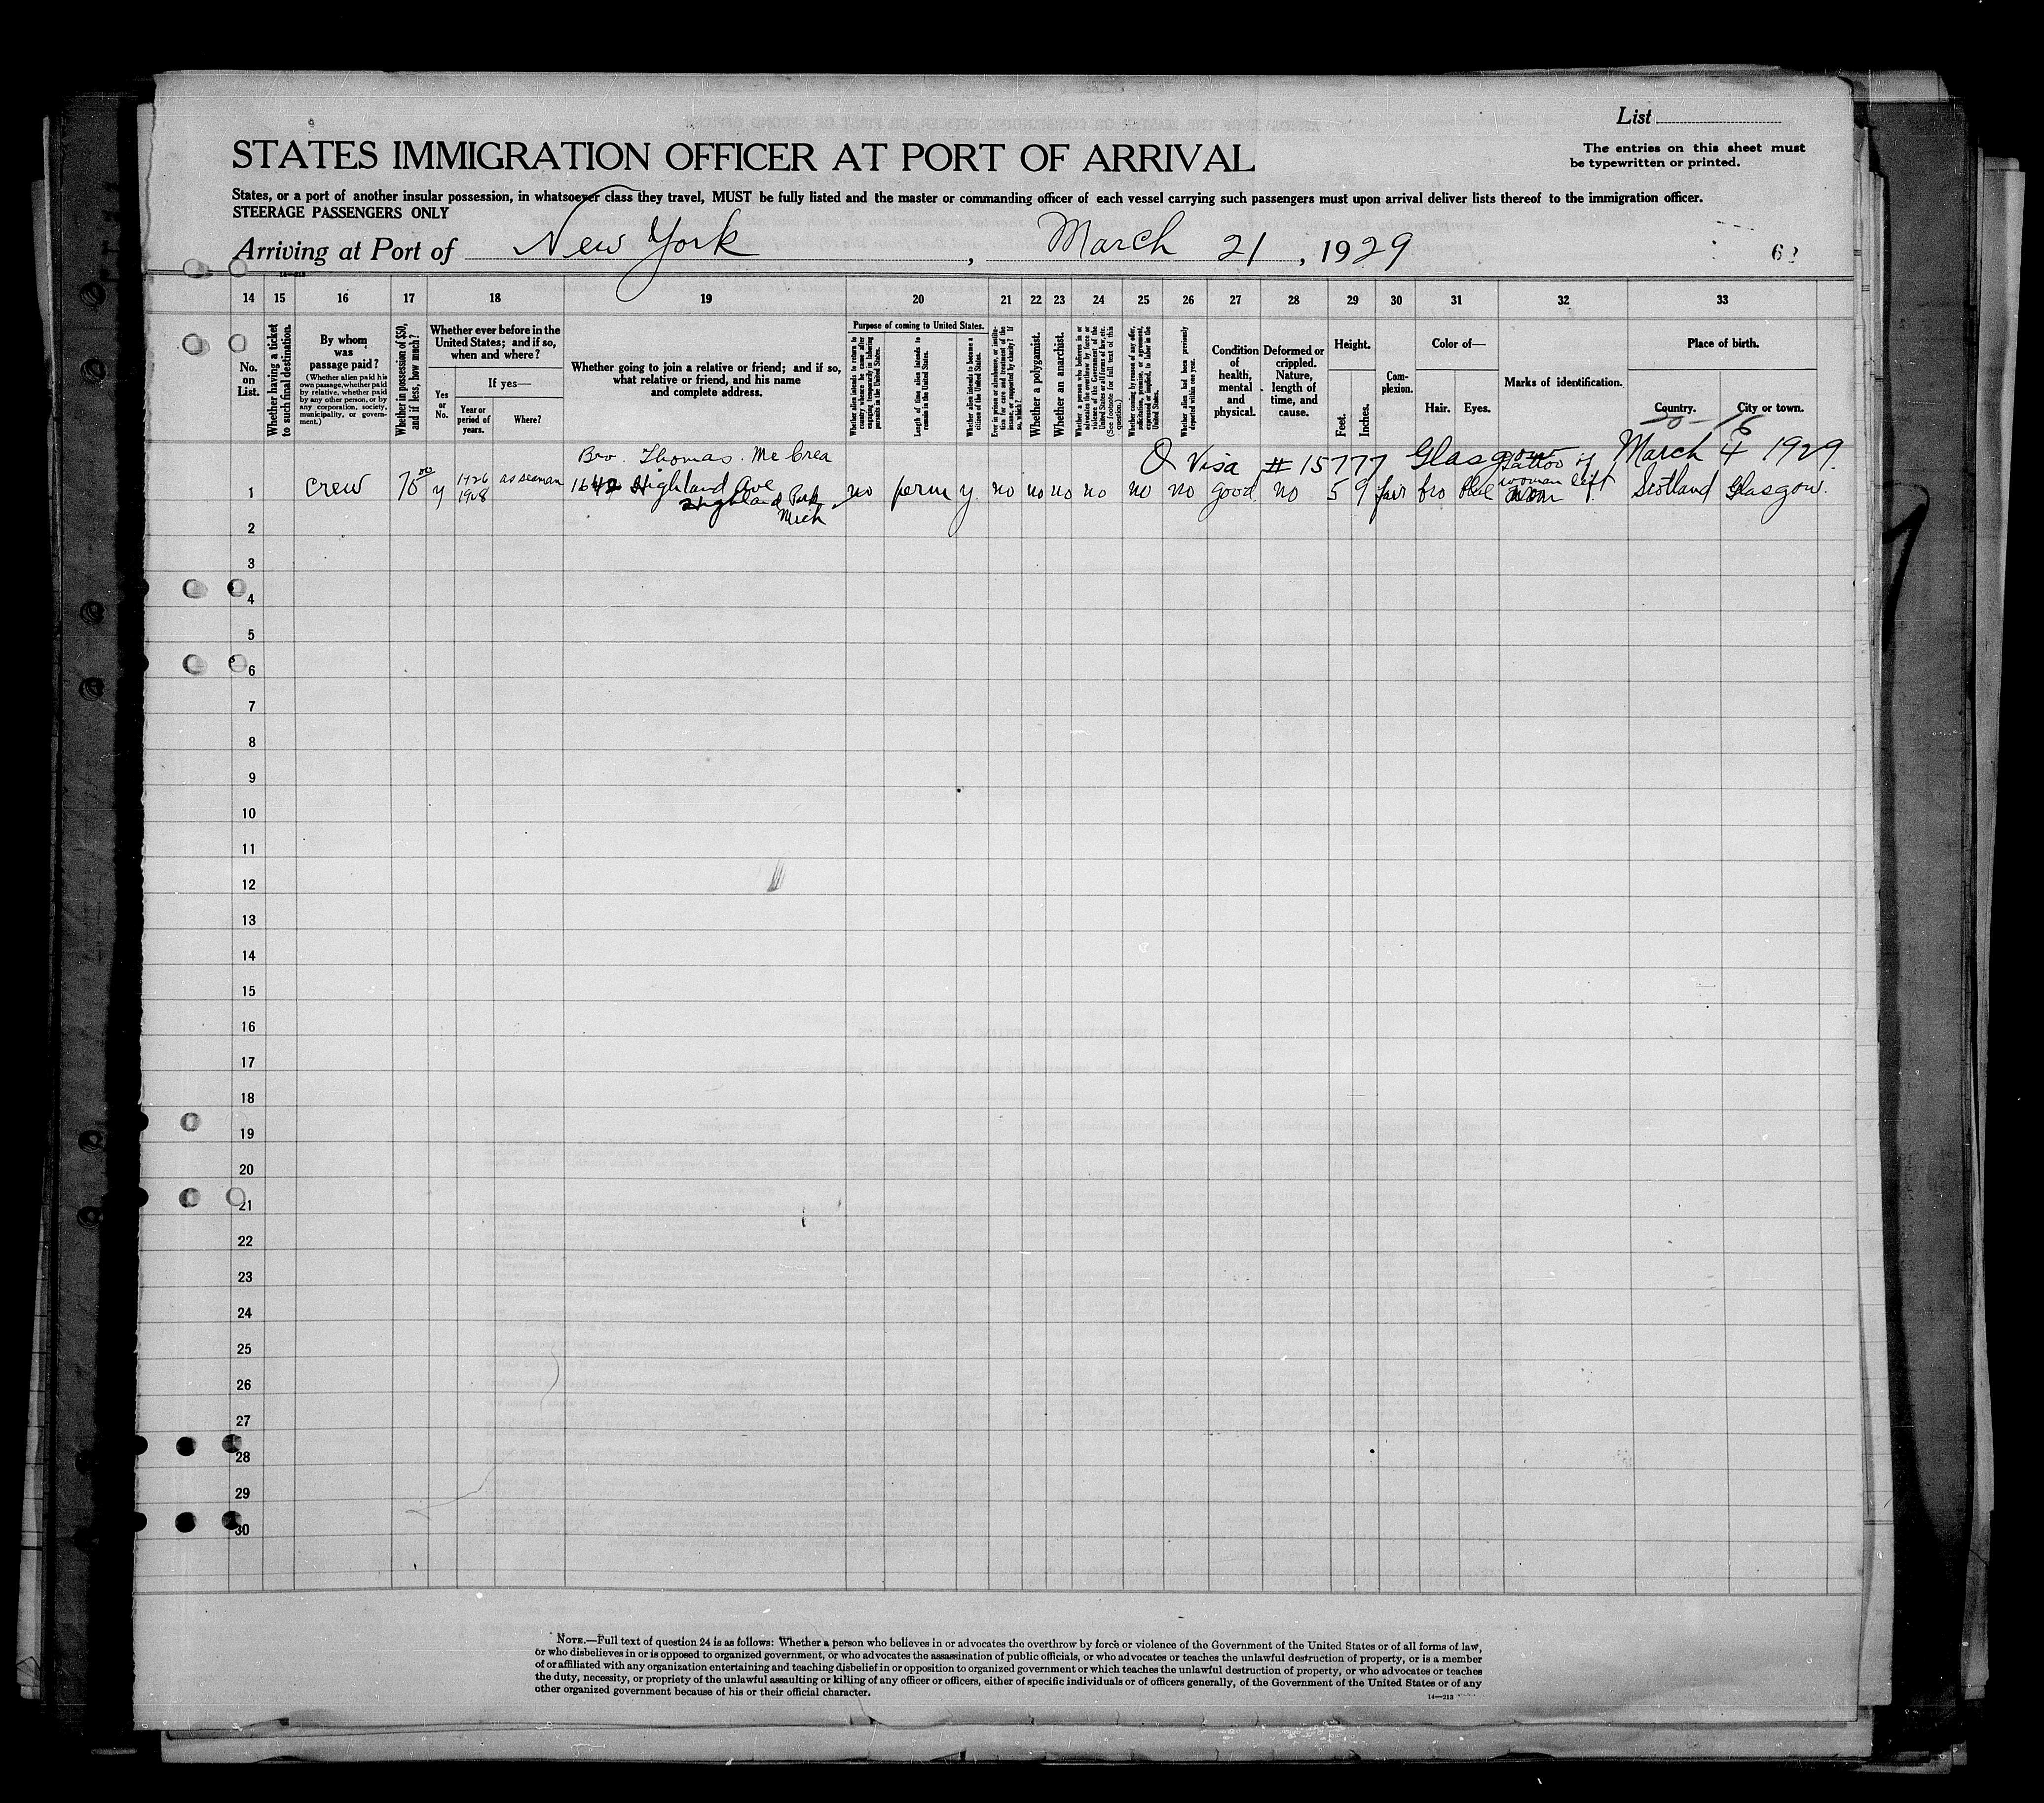 List
STATES IMMIGRATION OFFICER AT PORT OF ARRIVAL
The entries on this sheet must
be typewritten or printed.
States, or a port of another insular possession, in whatsoever class they travel, MUST be fully listed and the master or commanding officer of each vessel carrying such passengers must upon arrival deliver lists thereof to the immigration officer.
STEERAGE PASSENGERS ONLY
Arriving at Port of New York, March 21, 1929
14—213
14 15 16 17 18 19 20 21 22 23 24 25 26 27 28 29 30 31 32 33
No. on List.
Whether having a ticket to such final destination.
By whom was passage paid?
(Whether alien paid his own passage, whether paid by relative, whether paid by any other person, or by any corporation, society, municipality, or government.)
Whether in possession of $50, and if less, how much?
Whether ever before in the United States; and if so, when and where?
Yes or No.
If yes—
Year or period of years.
Where?
Whether going to join a relative or friend; and if so, what relative or friend, and his name and complete address.
Purpose of coming to United States.
Whether alien intends to return to country whence he came after engaging temporarily in laboring pursuits in the United States.
Length of time alien intends to remain in the United States.
Whether alien intends to become a citizen of the United States.
Ever in prison or almshouse, or institution for care and treatment of the insane, or supported by charity? If so, which?
Whether a polygamist.
Whether an anarchist.
Whether a person who believes in or advocates the overthrow by force or violence of the Government of the United States or all forms of law, etc. (See footnote for full text of this question.)
Whether coming by reason of any offer, solicitation, promise, or agreement, expressed or implied, to labor in the United States.
Whether alien had been previously deported within one year.
Condition of health, mental and physical.
Deformed or crippled. Nature, length of time, and cause.
Height.
Feet. Inches.
Complexion.
Color of—
Hair. Eyes.
Marks of identification.
Place of birth.
Country. City or town.
Bro. Thomas McCrea Q Visa # 15777 Glasgow March 4 1929
1 crew 70 00 y 1926 1928 as seaman 1642 Highland Ave Highland Park Mich no perm y no no no no no no good no 5 9 fair bro blue Tattoo of woman left Scotland Glasgow.
2
3
4
5
6
7
8
9
10
11
12
13
14
15
16
17
18
19
20
21
22
23
24
25
26
27
28
29
30
NOTE.—Full text of question 24 is as follows: Whether a person who believes in or advocates the overthrow by force or violence of the Government of the United States or of all forms of law,
or who disbelieves in or is opposed to organized government, or who advocates the assassination of public officials, or who advocates or teaches the unlawful destruction of property, or is a member
of or affiliated with any organization entertaining and teaching disbelief in or opposition to organized government or which teaches the unlawful destruction of property, or who advocates or teaches
the duty, necessity, or propriety of the unlawful assaulting or killing of any officer or officers, either of specific individuals or of officers generally, of the Government of the United States or of any
other organized government because of his or their official character.
14—213